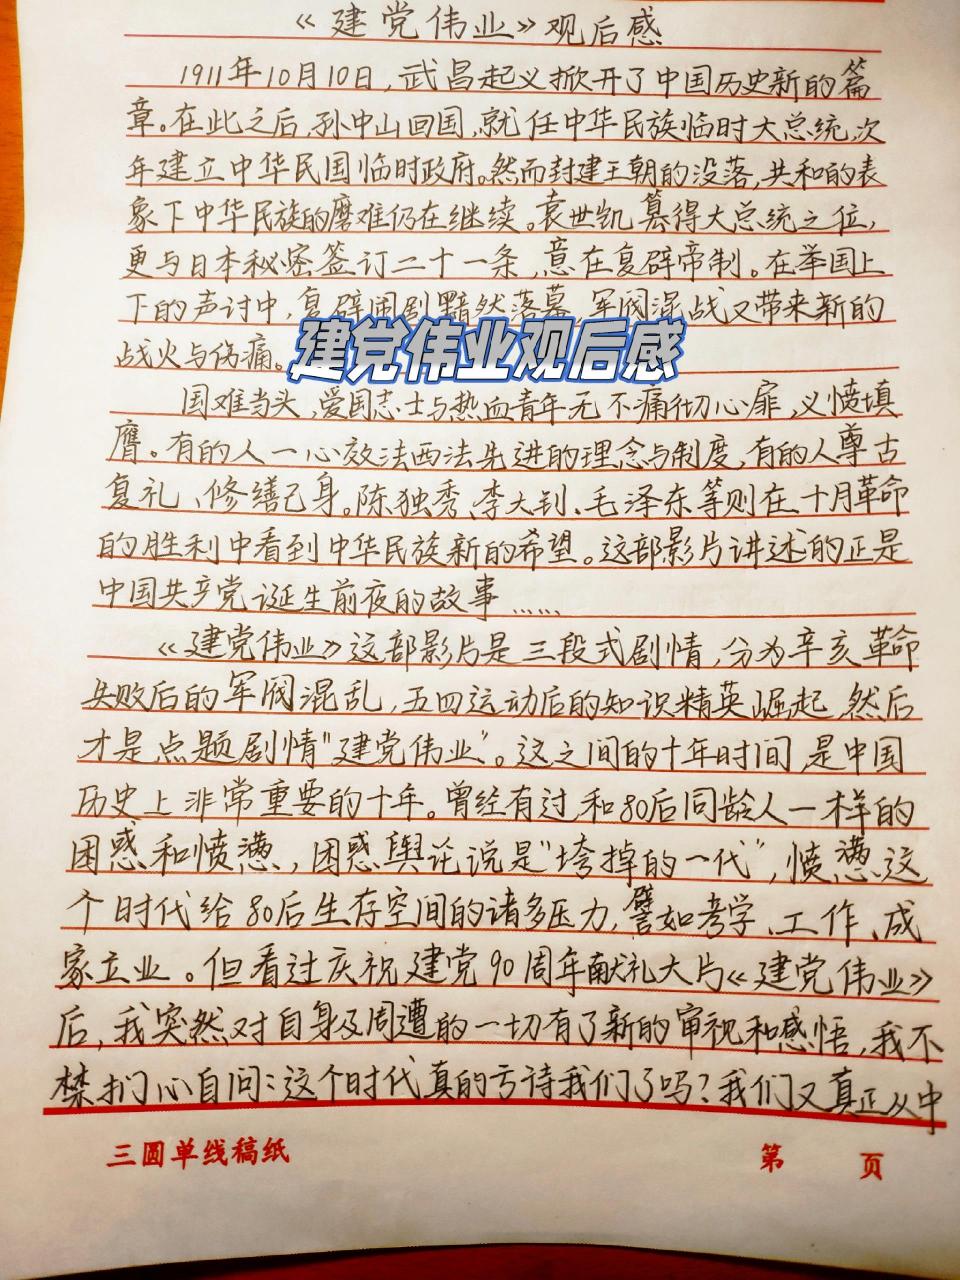 《建党伟业》观后感
1911年10月10日，武昌起义掀开了中国历史新的篇
章。在此之后，孙中山回国，就任中华民族临时大总统，次
年建立中华民国临时政府。然而封建王朝的没落，共和的表
象下中华民族的磨难仍在继续。袁世凯篡得大总统之位，
更与日本秘密签订二十一条，意在复辟帝制。在举国上
下的声讨中，复辟闹剧黯然落幕，军阀混战又带来新的
战火与伤痛。
建党伟业观后感
国难当头，爱国志士与热血青年无不痛彻心扉，义愤填
膺。有的人一心效法西法先进的理念与制度，有的人尊古
复礼、修缮己身。陈独秀、李大钊、毛泽东等则在十月革命
的胜利中看到中华民族新的希望。这部影片讲述的正是
中国共产党诞生前夜的故事……
《建党伟业》这部影片是三段式剧情，分为辛亥革命
失败后的军阀混乱，五四运动后的知识精英崛起，然后
才是点题剧情“建党伟业”。这之间的十年时间，是中国
历史上非常重要的十年。曾经有过和80后同龄人一样的
困惑和愤懑，困惑舆论说是“垮掉的一代”，愤懑这
个时代给80后生存空间的诸多压力，譬如考学、工作、成
家立业。但看过庆祝建党90周年献礼大片《建党伟业》
后，我突然对自身及周遭的一切有了新的审视和感悟，我不
禁扪心自问：这个时代真的亏待我们了吗？我们又真正从中
三圆单线稿纸
第 页